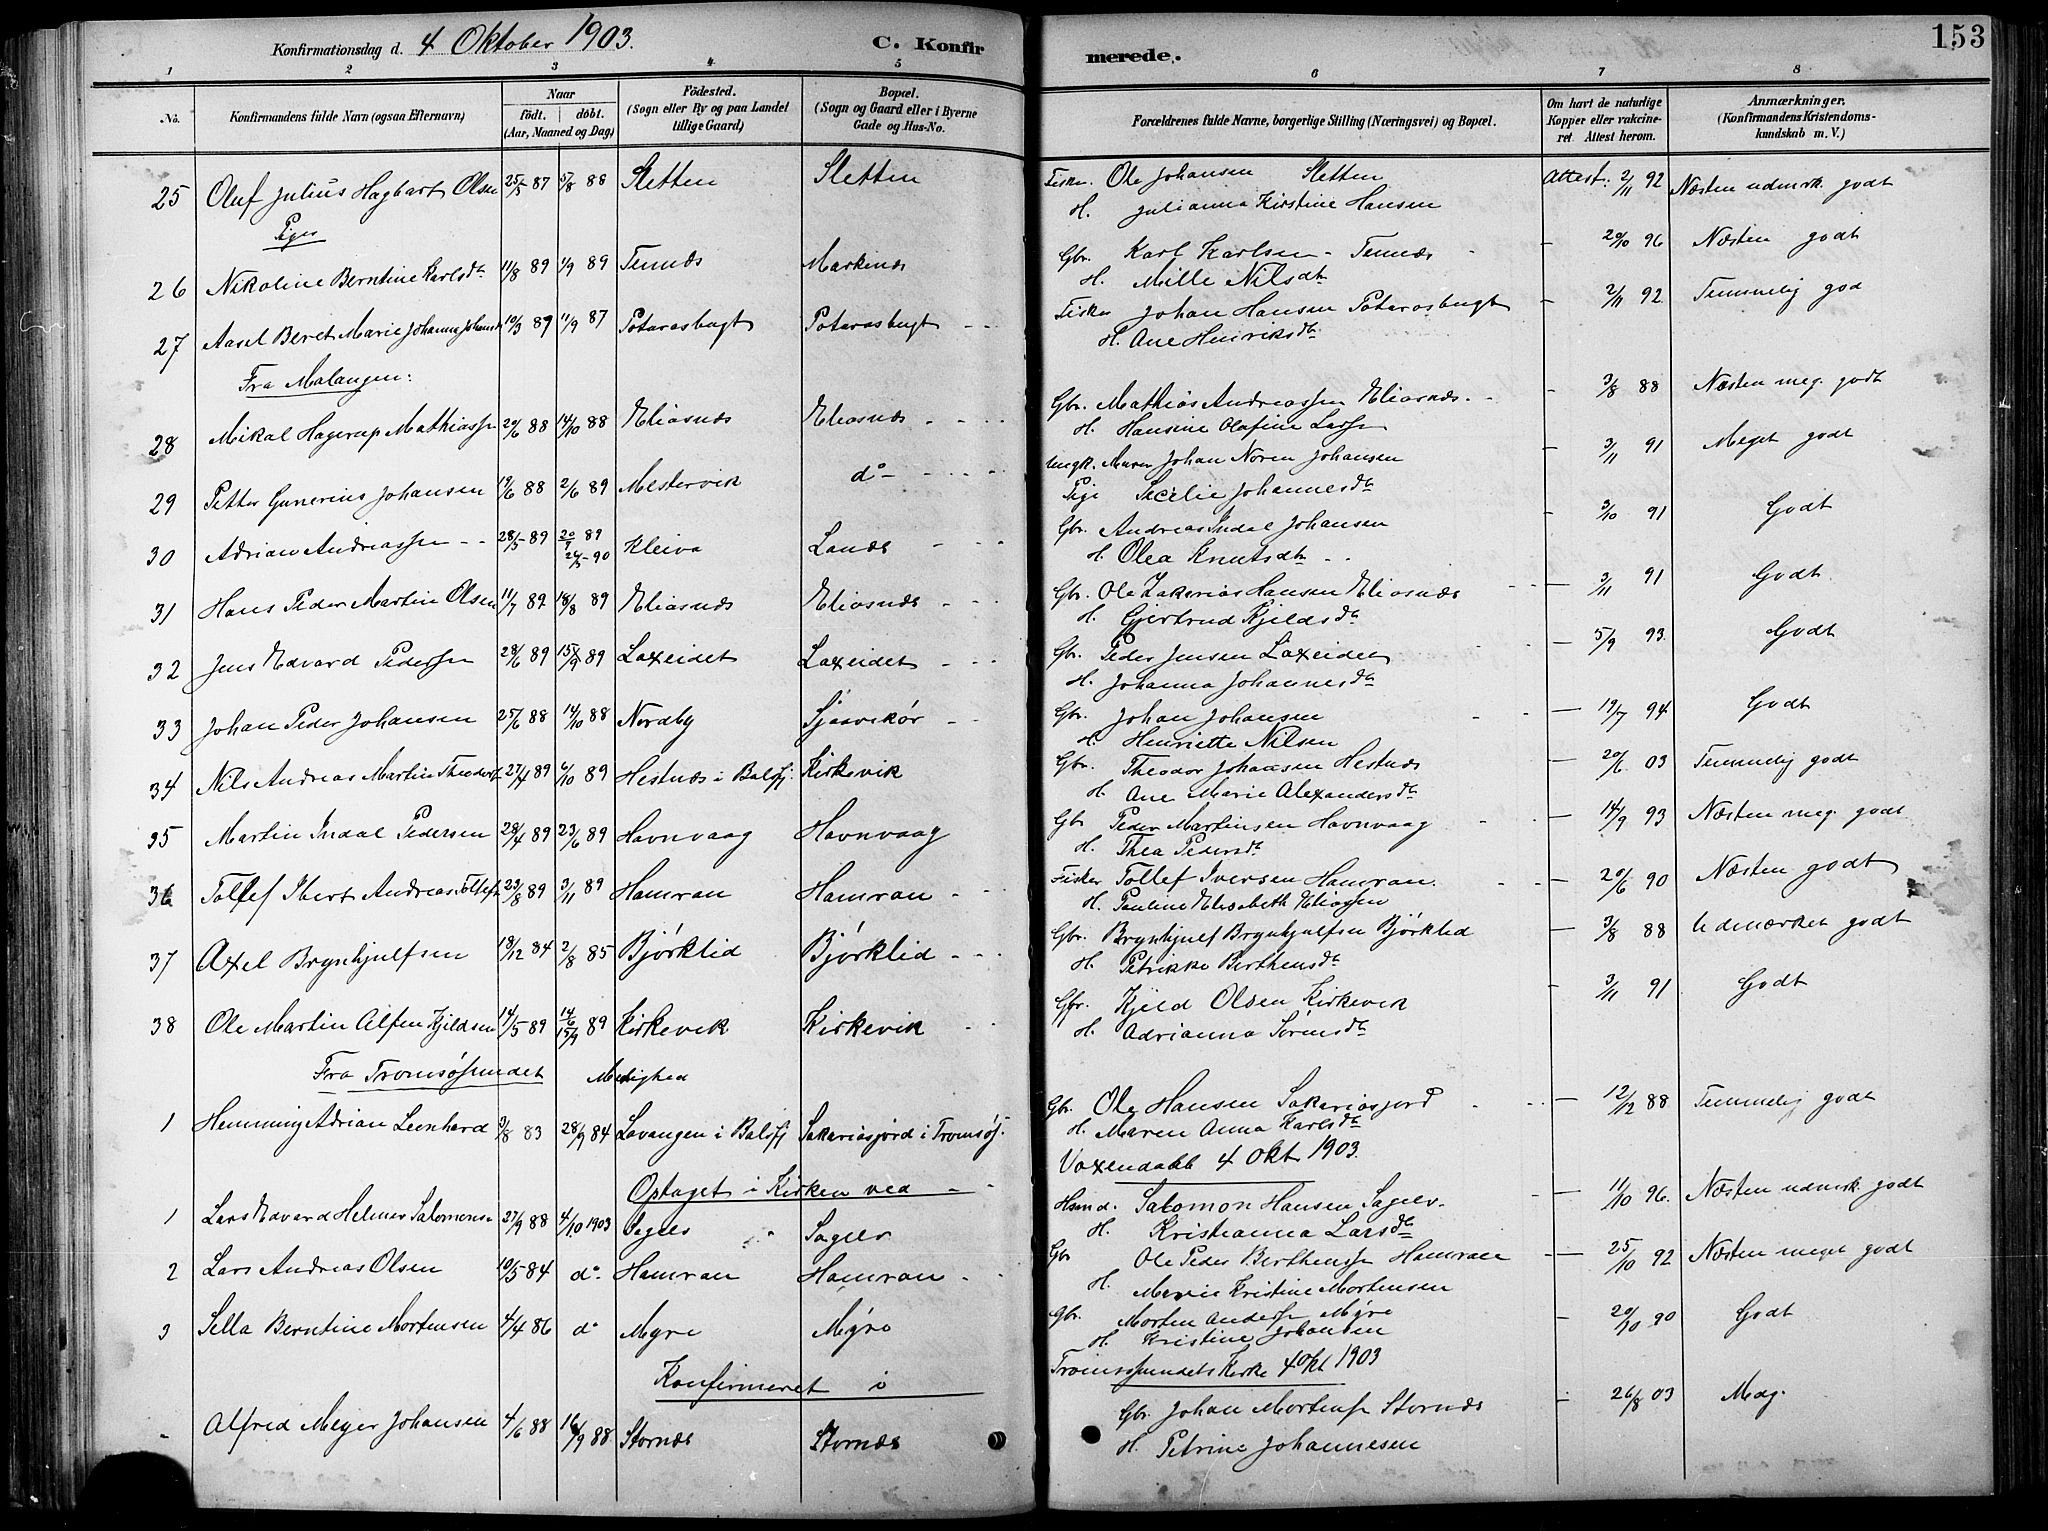 Konfirmationsdag d. 4 Oktober 1903. C. Konfir
merede. 153
1 2 3 4 5 6 7 8
No. Konfirmandens fulde Navn (ogsaa Efternavn) Naar født. døbt. (Aar, Maaned og Dag) Fødested. (Sogn eller By og paa Landet tillige Gaard) Bopæl. (Sogn og Gaard eller i Byerne Gade og Hus-No. Forældrenes fulde Navne, borgerlige Stilling (Næringsvei) og Bopæl. Om havt de naturlige Kopper eller vakcineret Attest herom. Anmærkninger. (Konfirmandens Kristendomskundskab m. V.)
25 Oluf Julius Hagbart Olsen 25/5 87 5/8 88 Sletten Sletten Fisker. Ole Johansen Sletten Attest: 2/11 92 Næsten udmrk. godt
H. Julianna Kirstine Hansen
Piger
26 Nikoline Berntine Karlsdt 11/8 89 1/9 89 Tennæs Markenæs Gbr. Karl Karlsen - Tennæs - 20/10 96 Næsten godt
H. Mille Nilsdt
27 Aasel Beret Marie Johanna Johansd 10/3 89 11/9 87 Potarasbugt Potarasbugt Fisker Johan Hansen Potarasbugt - 2/11 92 Temmelig god
H. Ane Henriksdt
Fra Malangen:
28 Mikal Hagerup Mathiassn 20/6 88 14/10 88 Eliasnæs Eliasnæs Gbr. Mathias Andreassen Eliasnæs. - 3/8 88 Næsten meg. godt
H. Hansine Olafine Larsn
29 Petter Gunerius Johansen 19/6 88 2/6 89 Mestervik do Ungk. Johan Noren Johansen 3/11 91 Meget godt
Pige Secelie Johannesdt
30 Adrian Andreassn 28/5 89 20/7 89 Kleiva Lanæs Gbr. Andreas Indal Johansen 3/10 91 Godt
24/5 90 H. Olea Knutsdt
31 Hans Peder Martin Olsen 11/7 89 18/8 89 Eliasnæs Eliasnæs Gbr. Ole Zakarias Hansen Eliasnæs - 3/11 91 Godt
H. Gjertrud Kjeldsdt
32 Jens Edvard Pedersn 28/6 89 15/9 89 Laxeidet Laxeidet Gbr. Peder Jensen Laxeidet 5/9 93. Godt
H. Johanna Johannesdt
33 Johan Peder Johansen 25/6 88 14/10 88 Nordby Sjaavikør Gbr. Johan Johansen - 19/7 94 Godt
H. Henriette Nilsen
34 Nils Andreas Martin Theodors 27/4 89 6/10 89 Hestnæs i Balsfj. Kirkevik Gbr. Theodor Johansen Hestnæs 20/6 03 Temmelig godt
H. Ane Marie Alexandersdt
35 Martin Indal Pedersen 28/4 89 23/6 89 Havnvaag Havnvaag Gbr Peder Martinsen Havnvaag - 14/9 93 Næsten meg. godt
H. Thea Pedersdt
36 Tollef Ibert Andreas Tollefs 23/8 89 3/11 89 Hamran Hamran Fisker Tollef Iversen Hamran. - 20/6 90 Næsten godt
H. Pauline Elisabeth Eliassen
37 Axel Brynhjulfsen 18/12 84 2/8 85 Bjørklid Bjørklid Gbr. Brynhjulf Brynhjulfsen Bjørklid - 3/8 88 Udmærket godt
H. Petrikke Berthensdt
38 Ole Martin Alfen Kjeldsen 14/5 89 14/6 89 Kirkevik Kirkevik Gbr. Kjeld Olsen Kirkevik - 3/11 91 Godt
15/9 H. Adrianna Sørensdt
Fra Tromsøsundet Menighed
1 Hemming Adrian Leonhard 3/8 83 28/9 84 Lavangen i Balsfj Sakariasjord i Tromsøs. Gbr. Ole Hansen Sakariasjord 12/12 88 Temmelig godt
H. Maren Anna Karlsdt
Optaget i Kirken ved Voxendaab 4 Okt 1903.
1 Lars Edvard Helmer Salomons 27/9 88 4/10 1903 Sagelv Sagelv Hsmd. Salomon Hansen Sagelv. - 11/10 96. Næsten udmrk. godt
H. Kristianna Larsdt
2 Lars Andreas Olsen 10/5 84 do. Hamran Hamran Gbr Ole Peder Berthensn Hamran - 25/10 92 Næsten meget godt
H. Marie Kristine Mortensen
3 Sella Berntine Mortensen 4/4 86 do Myre Myre Gbr. Morten Andersn Myre - 20/10 90 Godt
H. Kristine Johansen
Konfirmeret i Tromsøsundets Kirke 4 Okt 1903
- Alfred Meyer Johansen 4/6 88 16/9 88 Stornæs Stornæs Gbr. Johan Mortensn Stornæs 26/8 03 Mdg.
H. Petrine Johannesen